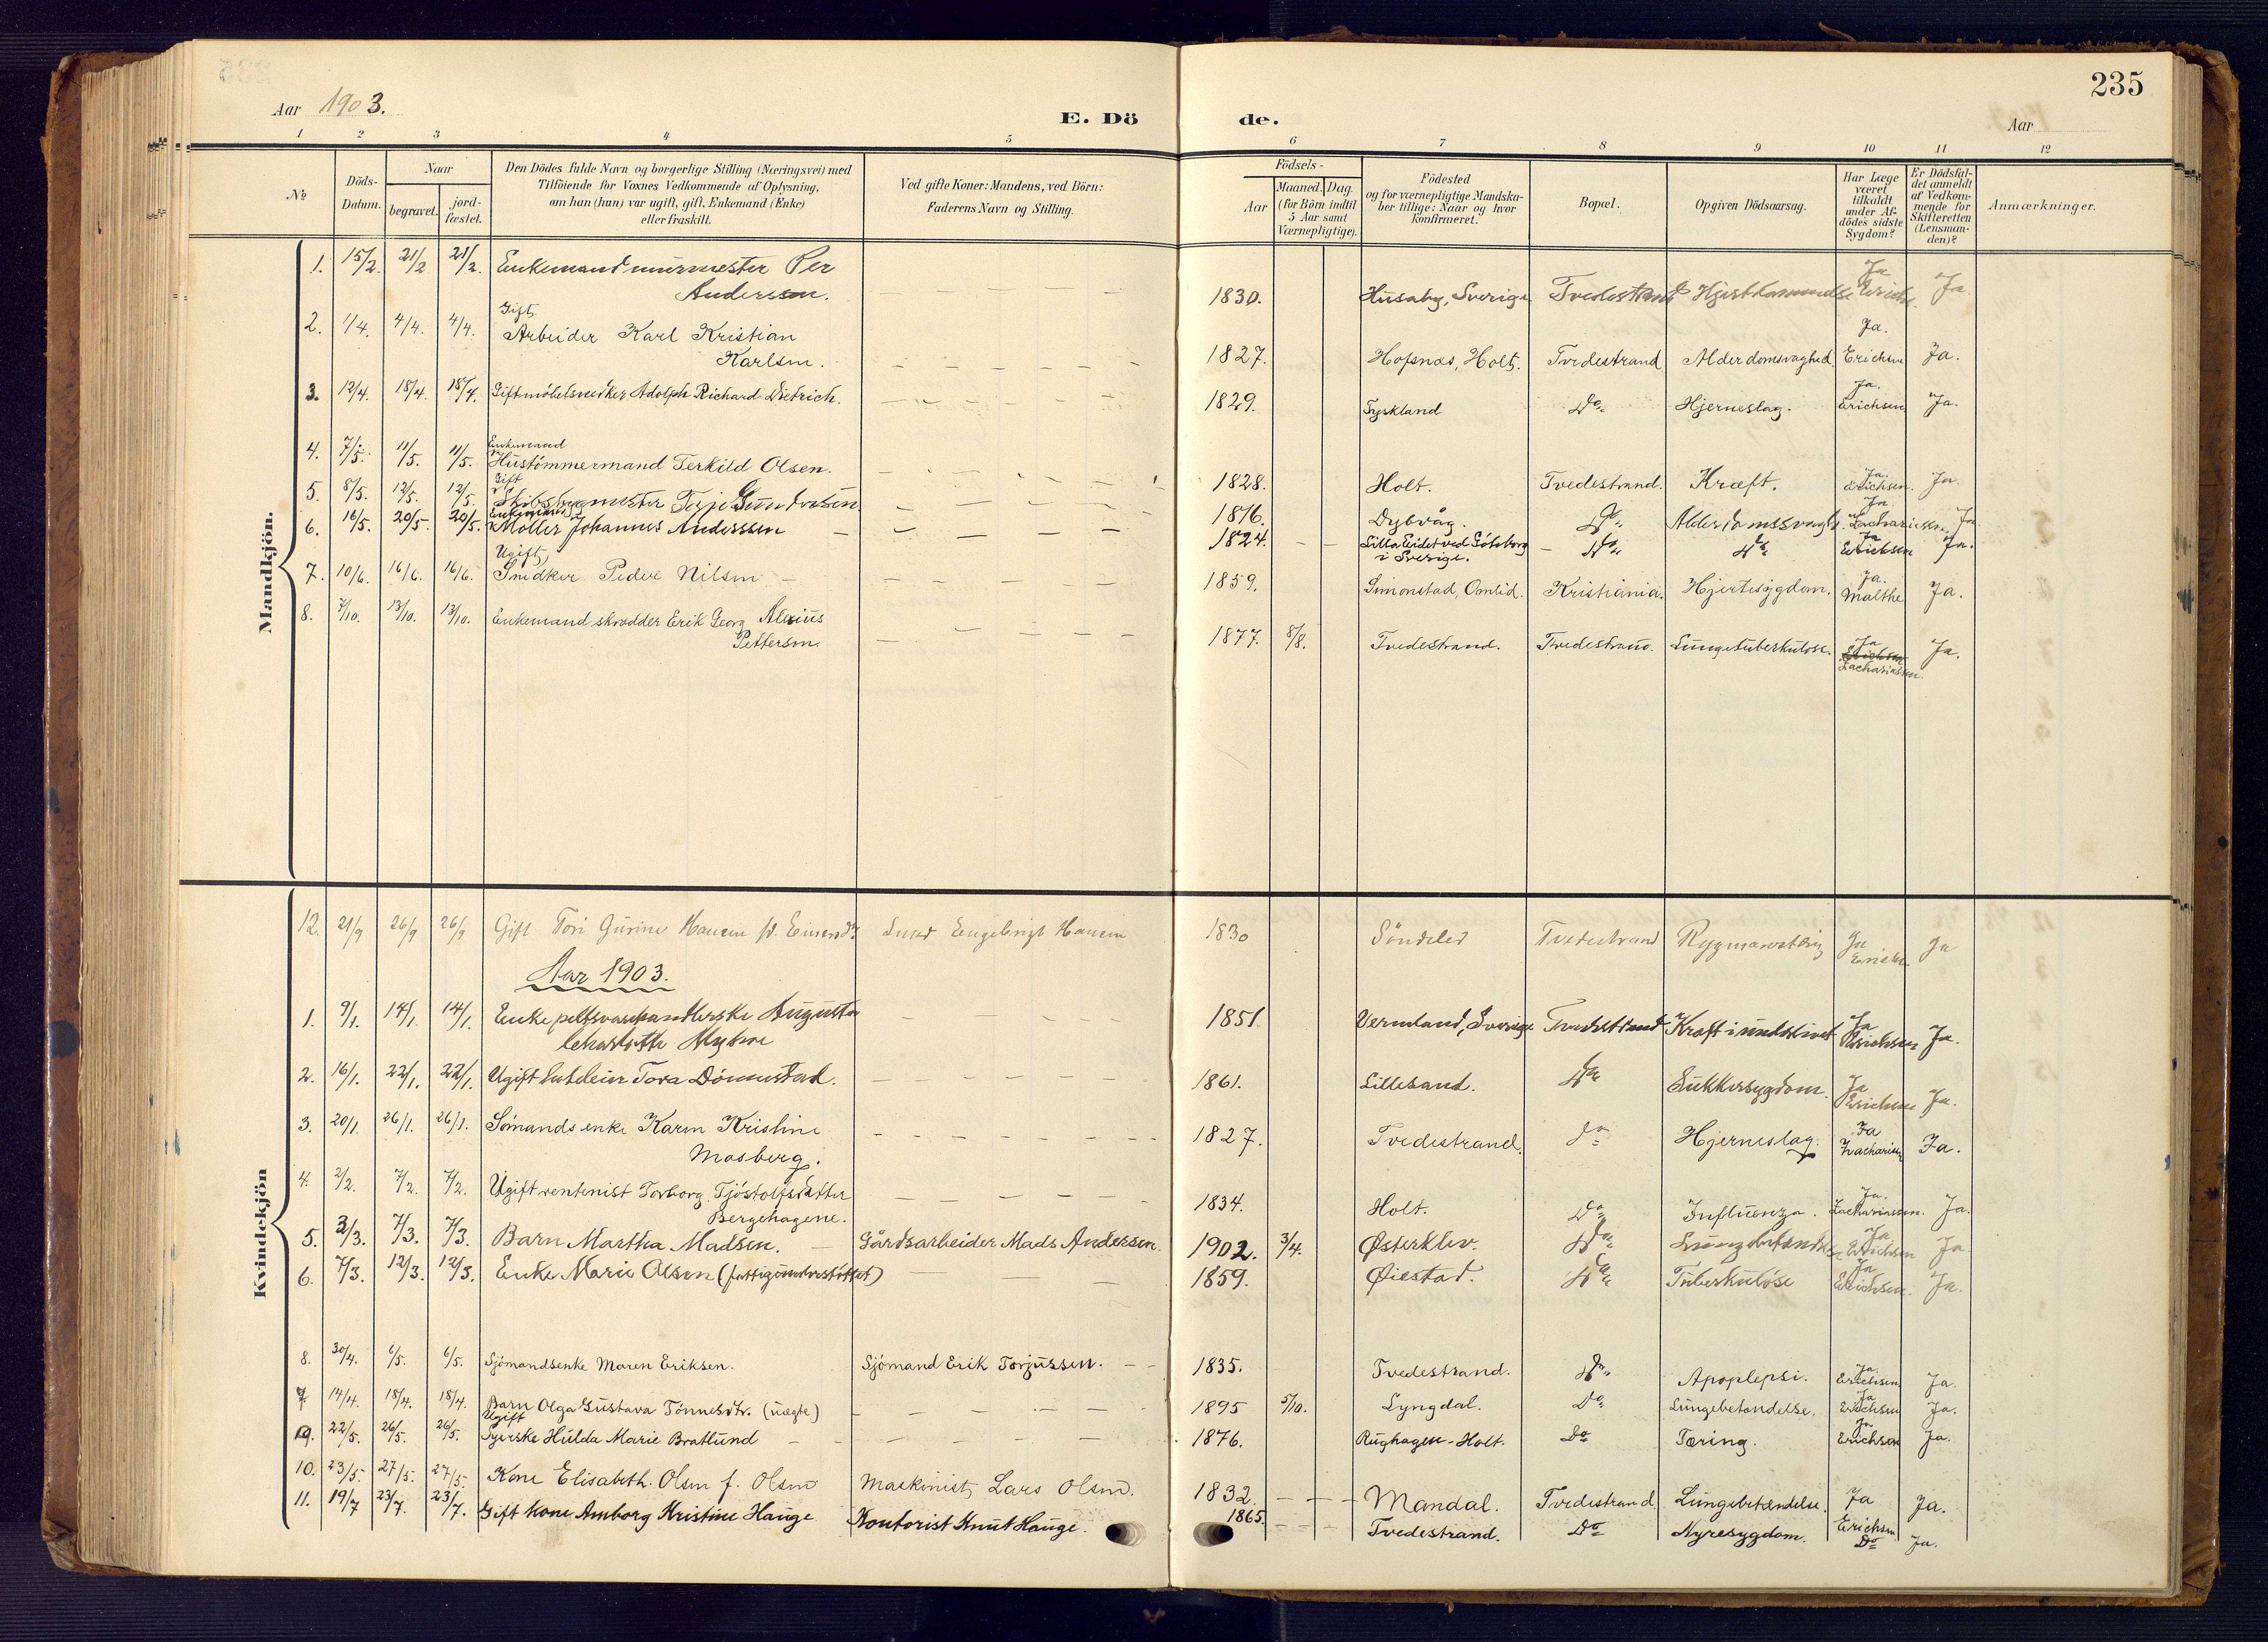 235
Aar 1903.
E. Dö de.
Aar
1 2 3 4 5 6 7 8 9 10 11 12
No
Döds-Datum.
Naar
begravet. jordfæstet.
Den Dödes fulde Navn og borgerlige Stilling (Næringsvei) med
Tilföiende for Voxnes Vedkommende af Oplysning,
om han (hun) var ugift, gift, Enkemand (Enke)
eller fraskilt.
Ved gifte Koner: Mandens, ved Börn:
Faderens Navn og Stilling.
Födsels-
Aar
Maaned. Dag.
(for Börn indtil
5 Aar samt
Værnepligtige).
Födested
og for værnepligtige Mandskaber tillige: Naar og hvor
konfirmeret.
Bopæl.
Opgiven Dödsaarsag.
Har Læge
været
tilkaldt
under Afdödes sidste
Sygdom?
Er Dödsfaldet anmeldt
af Vedkommende for
Skifteretten
(Lensmanden)?
Anmærkninger.
Mandkjön.
1. 15/2. 21/2 21/2. Enkemand murmester Per Andersson. 1830. Husaby, Sverige Tvedestrand Ja Ja.
2. 1/4. 4/4. 4/4. Gift Arbeider Karl Kristian Karlsen. 1827. Hofsnæs, Holt. Tvedestrand Alderdomsvaghed Ja. Erichsen Ja.
3. 12/4. 18/4. 18/4. Gift möbelsnedker Adolph Richard Dietrich. 1829. Tyskland Do Hjerneslag. Ja. Erichsen Ja.
4. 7/5. 11/5. 11/5. Enkemand Hustömmermand Terkild Olsen. 1828. Holt. Tvedestrand. Kræft. Ja. Erichsen. Ja.
5. 8/5. 12/5. 12/5. Gift Skibsbygmester Terje Gundersen 1816. Dybvåg. Do Alderdomssvagh. Ja. Zachariassen Ja
6. 16/5. 20/5. 20/5. Enkemand Møller Johannes Anderssen 1824. Lilla Eidet ved Göteborg i Sverige. Do Do Ja Erichsen Ja.
7. 10/6. 16/6. 16/6. Ugift Snedker Peder Nilsen 1859. Simonstad, Omlid. Kristiania. Hjertesygdom. Ja. Malthe Ja.
8. 7/10. 13/10. 13/10. Enkemand skrædder Erik Georg Alexius Petterson. 1877. 8/8. Tvedestrand. Tvedestrand. Lungetuberkulose. Ja Erichsen Zachariassen. Ja.
Kvindekjön
12. 21/9 26/9 26/9 Gift Tori Gurine Hansen Engebrigt Hansen 1830 Söndeled Tvedestrand Ja Ja
Aar 1903.
1. 9/1. 14/1. 14/1. Enke Augusta Charlotte 1851 Vermland, Sverige Tvedestrand Kræft i underlivet Ja Erichsen Ja.
2. 16/1. 22/1. 22/1. Ugift Tora Dönnestad. 1861. Lillesand. Do Sukkersygdom. Ja Erichsen Ja.
3. 20/1. 26/1. 26/1. Sömands enke Karen Kristine Mosberg. 1827. Tvedestrand. Do Hjerneslag. Ja Zachariasen Ja.
4. 2/2. 7/2. 7/2. Ugift rentenist Torborg Tjöstolfsdatter Bergehagene. 1834. Holt. Do Influenza. Ja. Zachariassen. Ja.
5. 3/3. 7/3. 7/3. Barn Martha Madsen. Gårdsarbeider Mads Andersen. 1902. 3/4. Østerklev. Do Lungebetændelse Ja. Erichsen Ja
6. 7/3. 12/3. 12/3. Enke Marie Olsen (fattigunderstöttet) 1859. Øiestad. Do Tuberkulöse Ja Erichsen. Ja.
8. 30/4. 6/5. 6/5. Sjömandsenke Maren Eriksen. Sjömand Erik Torjussen. 1835. Tvedestrand. Do Apoplepsi. Ja. Erichsen Ja.
7. 14/4. 18/4. 18/4. Barn Olga Gustava Tönnesdtr. (uægte) 1895 5/10. Lyngdal. Do Lungebetendelse. Ja Erichsen Ja.
9. 22/5. 26/5. 26/5. Ugift Syerske Hulda Marie Bratlund 1876. Rughagen-Holt. Do Tæring. Ja Erichsen Ja.
10. 23/5. 27/5. 27/5. Kone Elisabeth Olsen f. Olsen Maskinist Lars Olsen. 1832. Mandal. Tvedestrand. Lungebetændelse. Ja Erichsen Ja.
11. 19/7 23/7. 23/7. Gift kone Amborg Kristine Hauge Kontorist Knut Hauge. 1865. Tvedestrand. Do Nyresygdom. Do Ja.